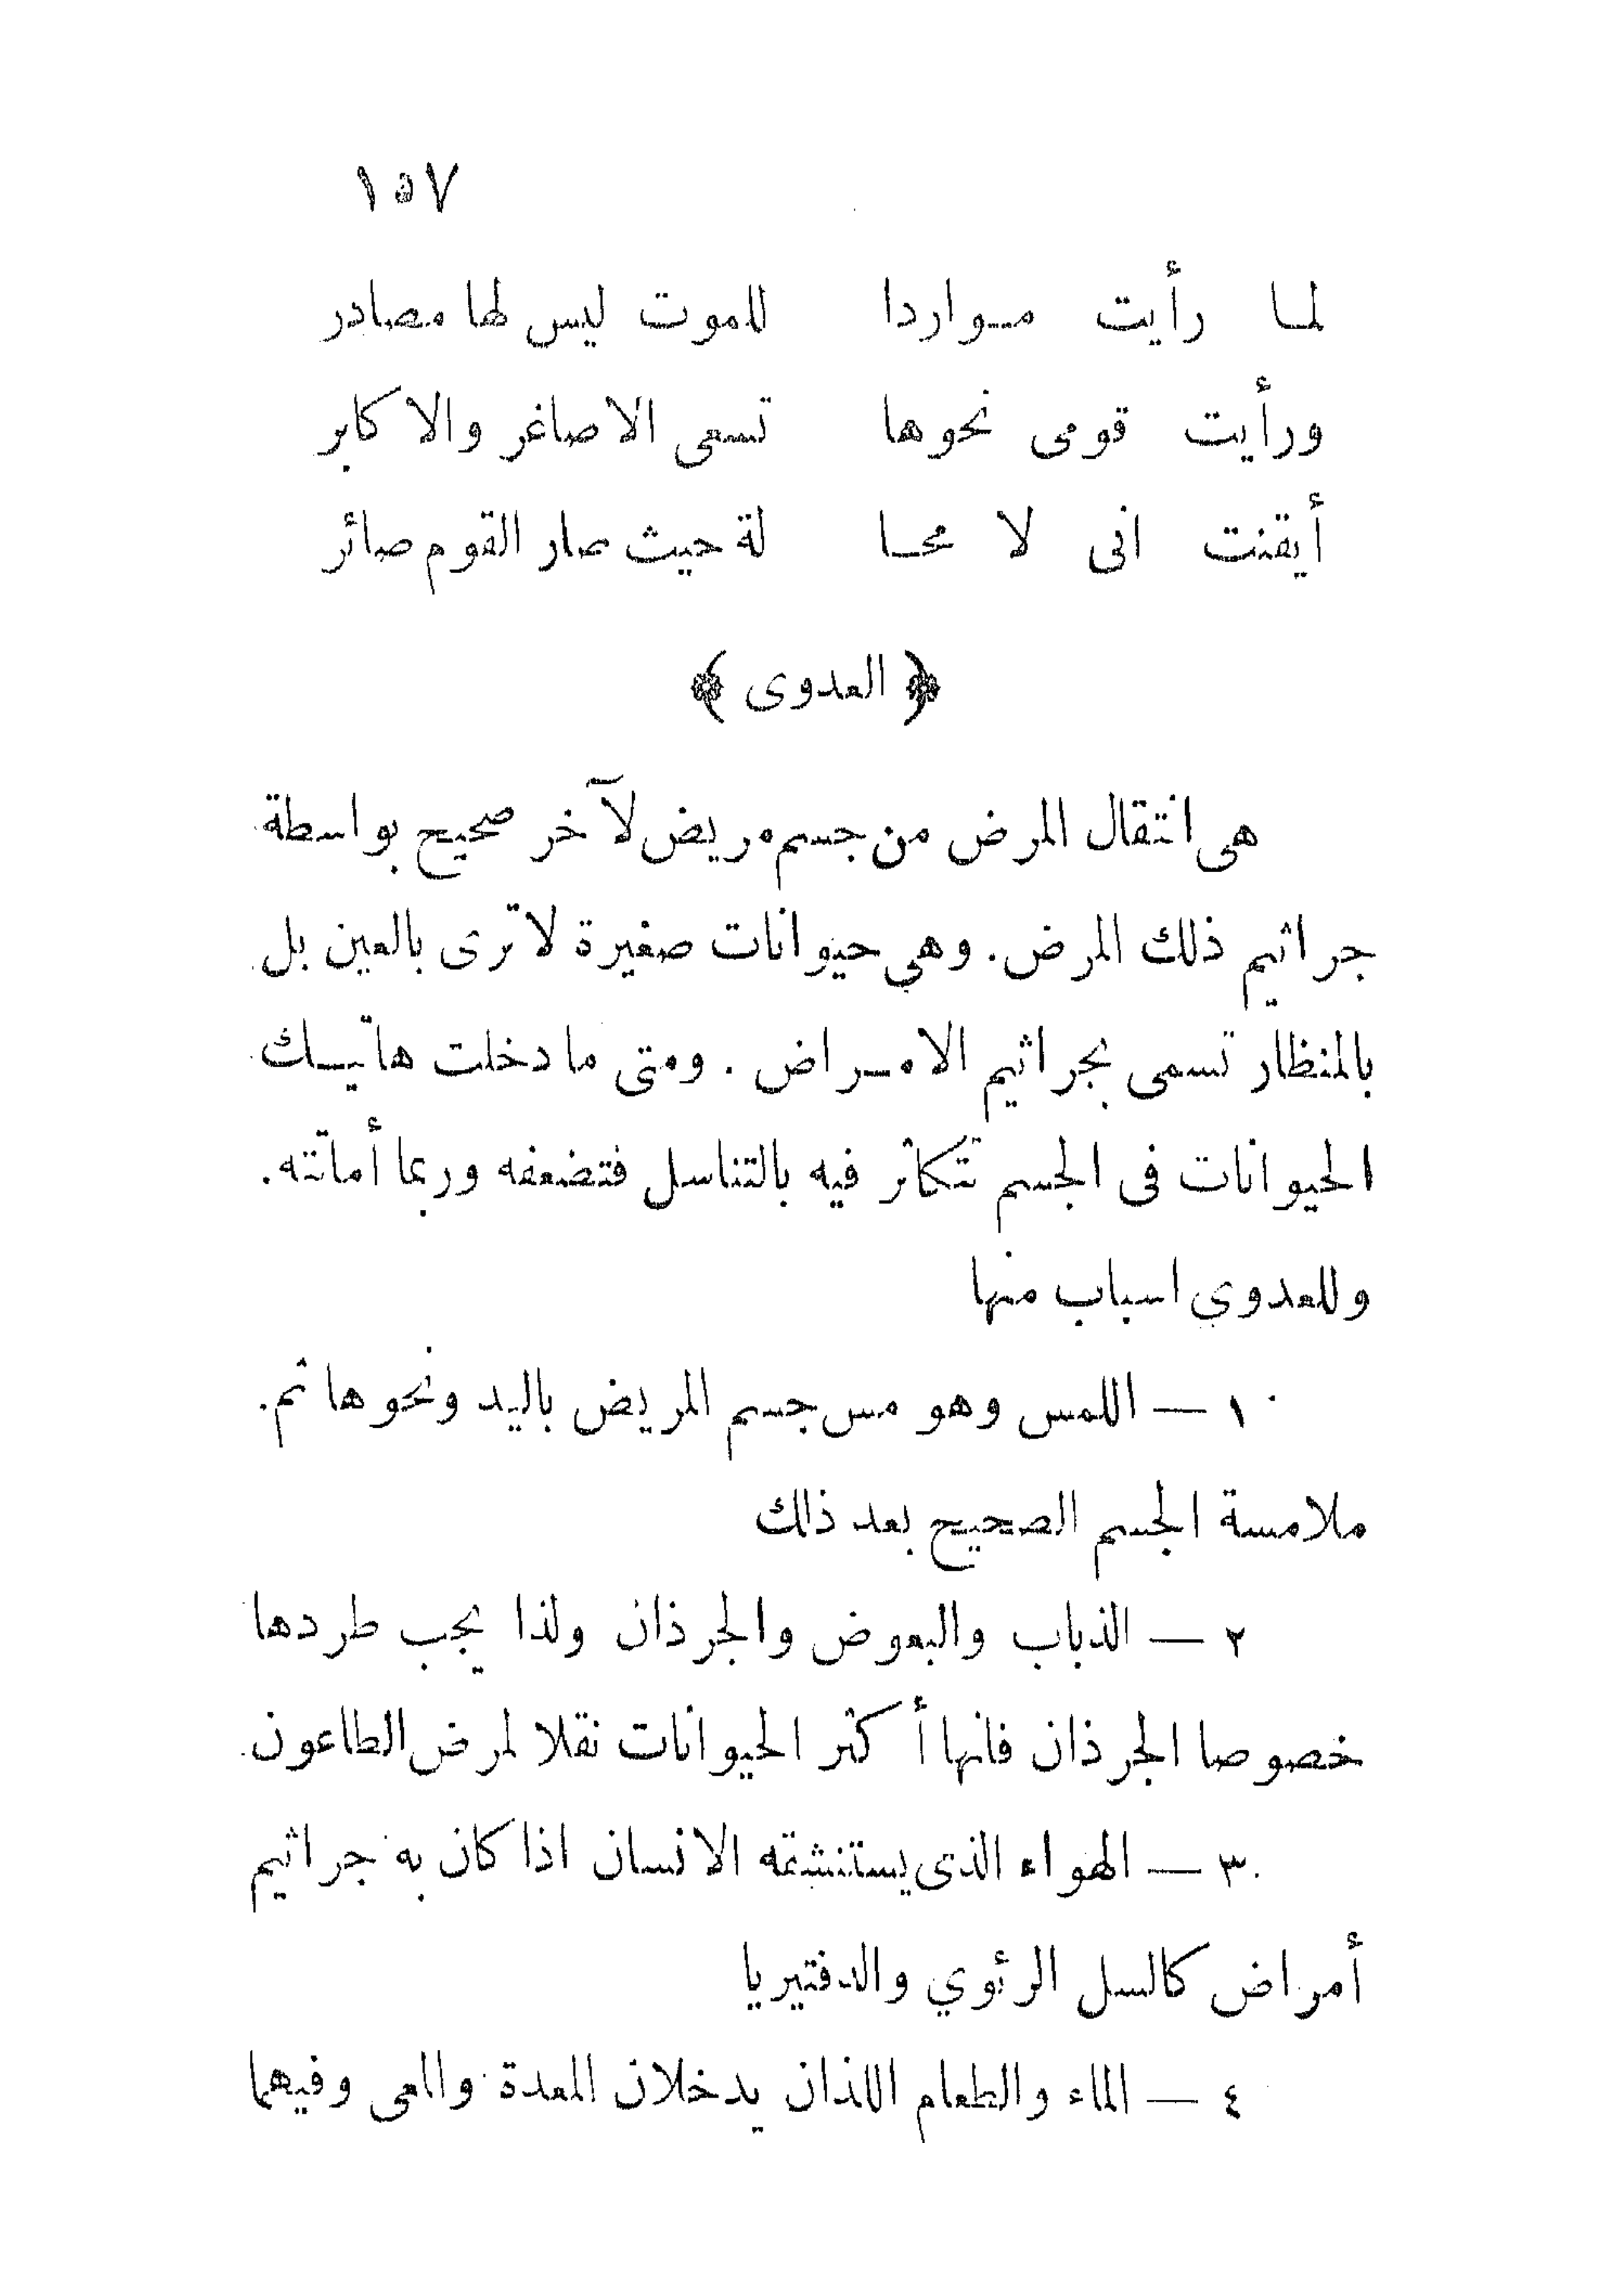 ١٥٧
لمـا رأيت مـواردا للموت ليس لها مصادر
ورأيت قومى نحوها تسعى الاصاغر والاكابر
أيقنت انى لا محـا لة حيث صار القوم صائر
﴿ العدوى ﴾
هى انتقال المرض من جسم مريض لآخر صحيح بواسطة
جراثيم ذلك المرض. وهي حيوانات صغيرة لا ترى بالعين بل
بالمنظار تسمى بجراثيم الامـراض . ومتى ما دخلت هاتيـك
الحيوانات فى الجسم تتكاثر فيه بالتناسل فتضعفه وربما أماتته.
وللعدوي اسباب منها
١ — اللمس وهو مس جسم المريض باليد ونحوها ثم.
ملامسة الجسم الصحيح بعد ذلك
٢ — الذباب والبعوض والجرذان ولذا يجب طردها
خصوصا الجرذان فانها أكثر الحيوانات نقلا لمرض الطاعون.
٣ — الهواء الذى يستنشقه الانسان اذا كان به جراثيم
أمراض كالسل الرئوي والدفتيريا
٤ — الماء والطعام اللذان يدخلان المعدة والمعى وفيهما